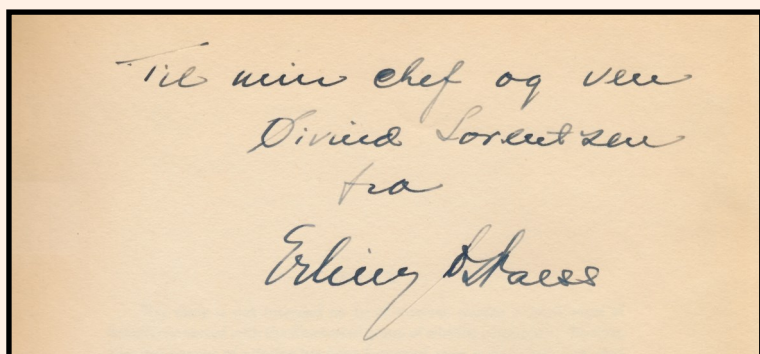 Til min chef og ven
Øivind Lorentzen
fra
Erling